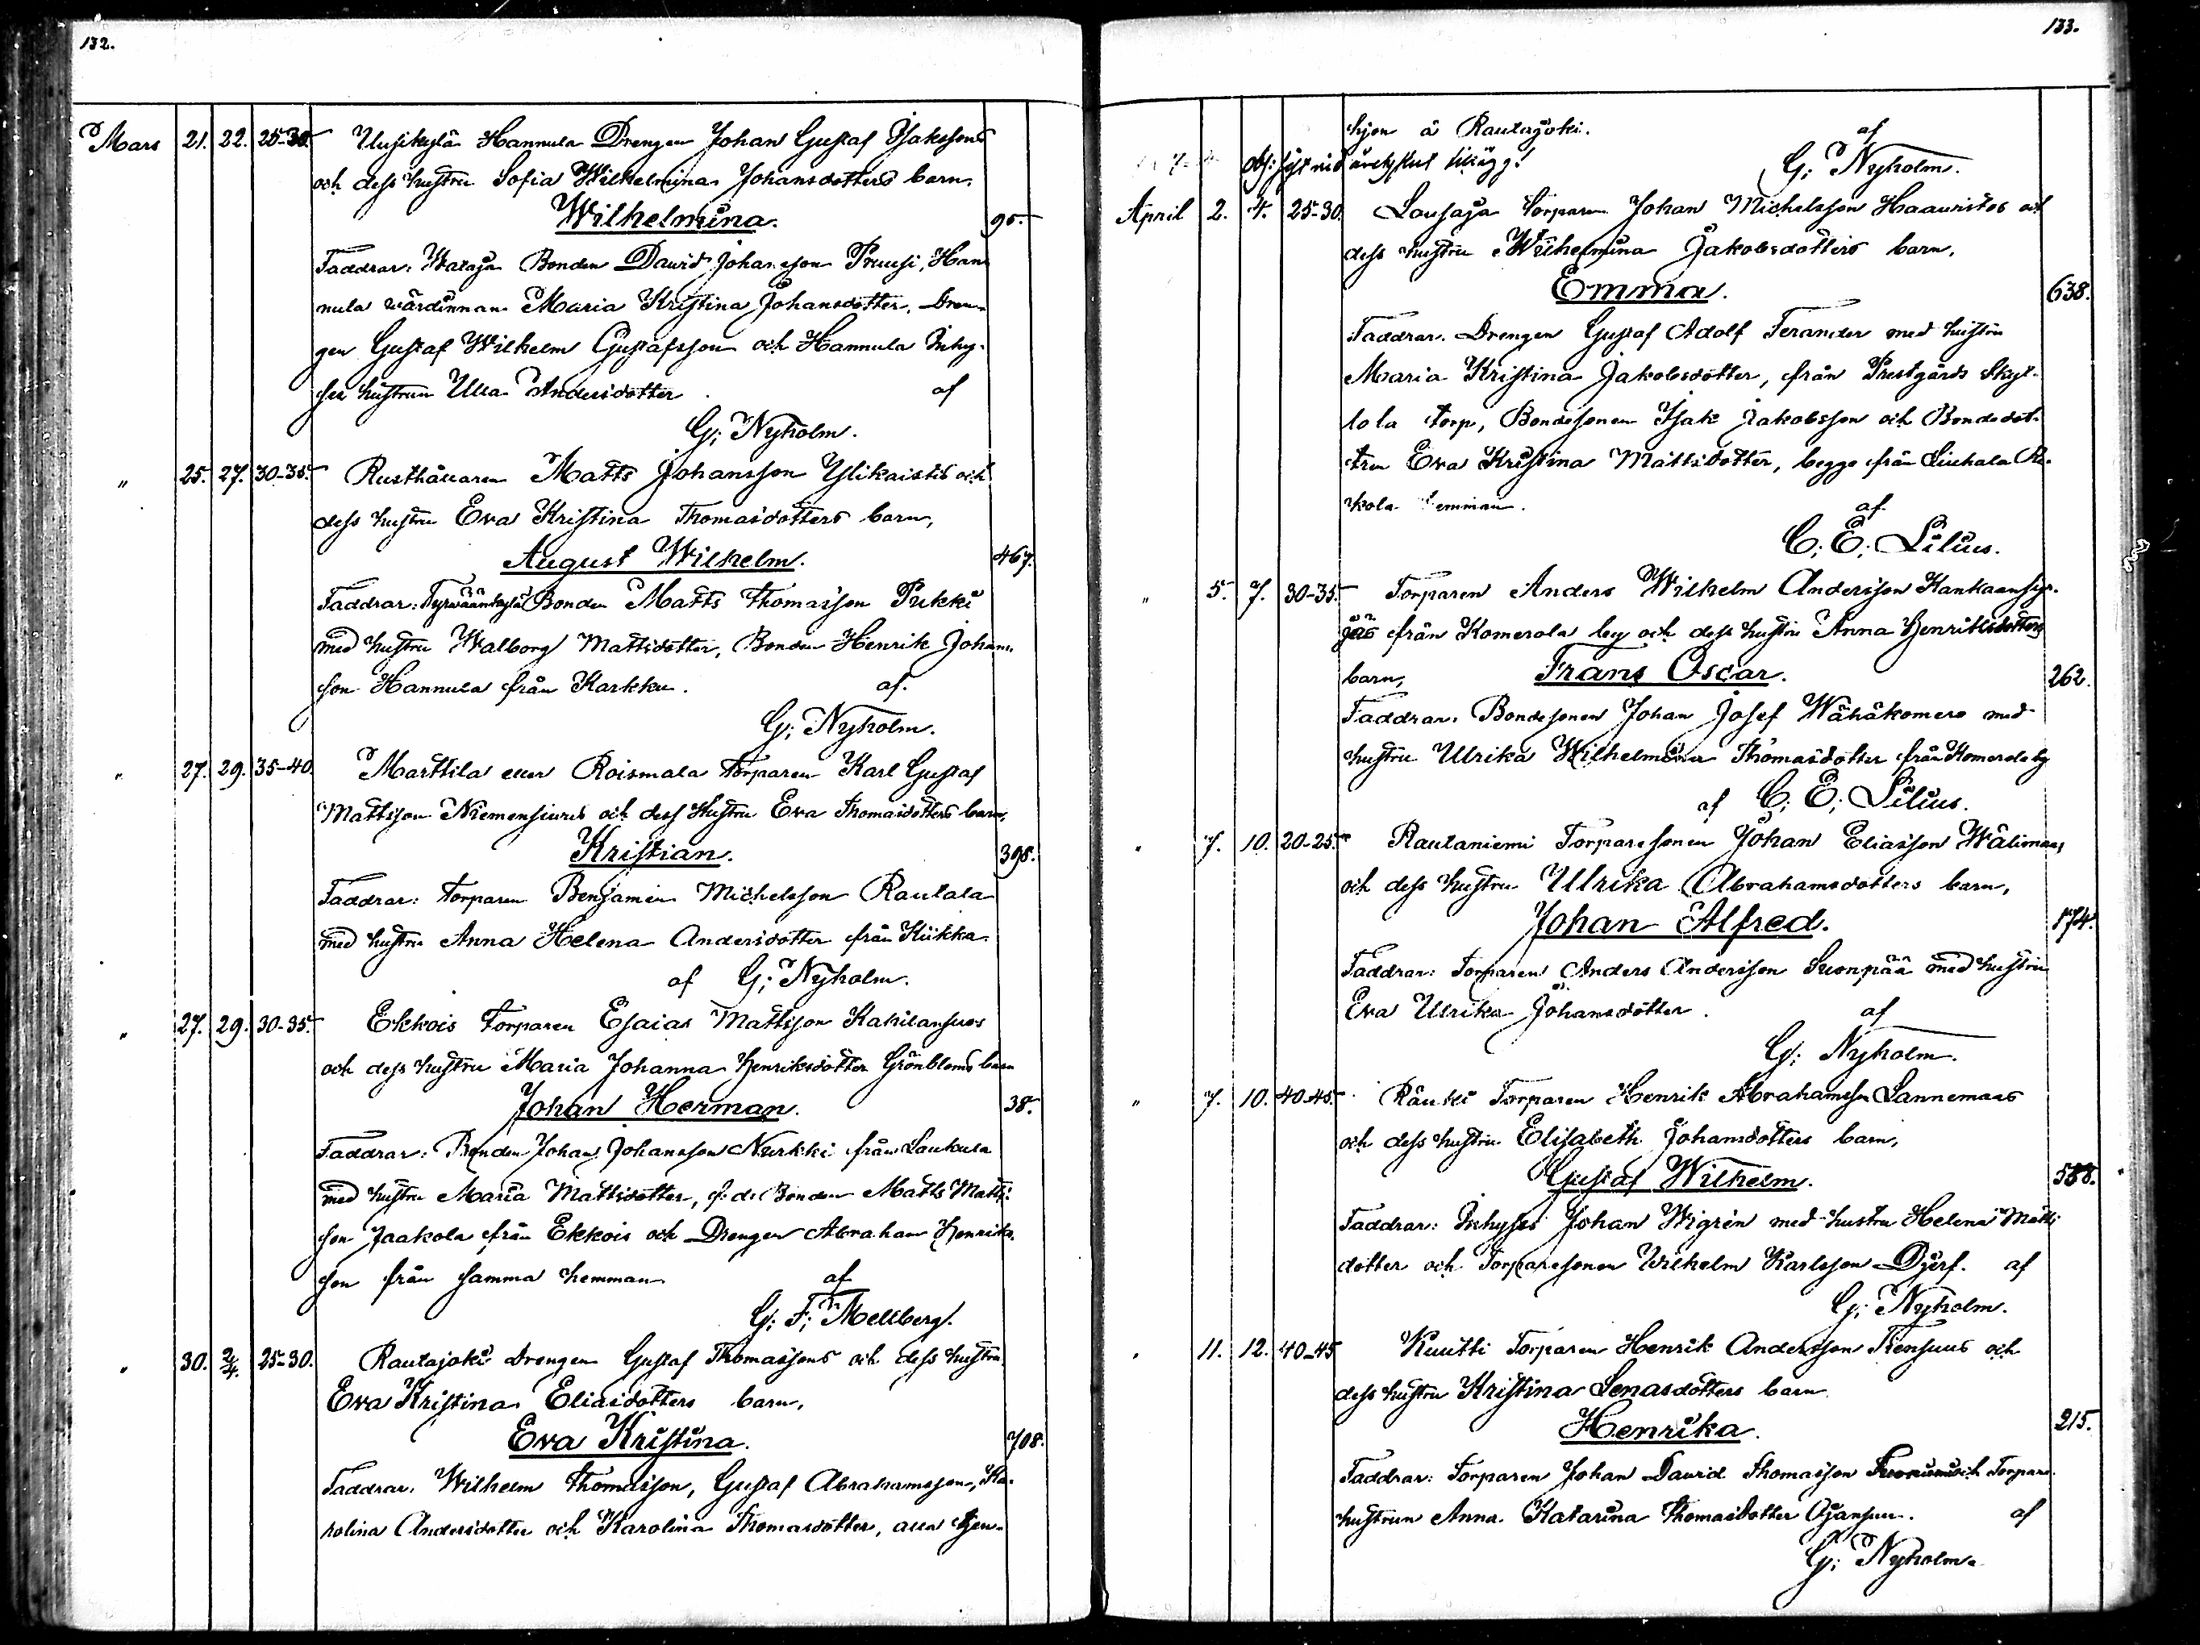 132.
Mars 21. 22. 25-30. Uusikylä Hannula Drengen Johan Gustaf Isakssons
och dess hustru Sofia Wilhelmina Johansdotters barn,
Wilhelmina. 95.
Faddrar: Wataja Bonden David Johansson Pruusi, Han-
nula wärdinnan Maria Kristina Johansdotter, Dren-
gen Gustaf Wilhelm Gustafsson och Hannula Inhy-
ses hustrun Ulla Andersdotter af
G; Nyholm.
" 25. 27. 30-35. Rusthållaren Matts Johansson Ylikaistis och
dess hustru Eva Kristina Thomasdotters barn,
August Wilhelm. 467.
Faddrar: Tyrväänkylä Bonden Matts Thomasson Pukki
med hustru Walborg Mattsdotter, Bonden Henrik Johans-
son Hannula från Karkku. af.
G; Nyholm.
" 27. 29. 35-40. Marttila eller Roismala torparen Karl Gustaf
Mattsson Niemensuus och dess Hustru Eva Thomasdotters barn,
Kristian. 395.
Faddrar: torparen Benjamin Michelsson Rautala
med hustru Anna Helena Andersdotter från Kiikka.
af G; Nyholm.
" 27. 29. 30-35. Ekkois torparen Esaias Mattsson Kakilansuos
och dess hustru Maria Johanna Henriksdotter Grönbloms barn
Johan Herman. 38.
Faddrar: Bonden Johan Johansson Nurkki från Laukula
med hustru Maria Mattsdotter, f. d. Bonden Matts Matts-
son Jaakola från Ekkois och Drengen Abraham Henriks-
son från samma hemman af
G; F; Mellberg.
" 30. 2/4. 25-30. Rautajoki drengen Gustaf Thomassons och dess hustru
Eva Kristina Eliasdotters barn,
Eva Kristina. 708.
Faddrar. Wilhelm Thomasson, Gustaf Abrahamsson, Ka-
rolina Andersdotter och Karolina Thomasdotter, alla tjen-
133.
hjon å Rautajoki. af
obs: sist vid årets slut tillägg! G; Nyholm.
April 2. 4. 25-30. Lousaja torparen Johan Michelsson Haauristos och
dess hustru Wilhelmina Jakobsdotters barn,
Emma. 638.
Faddrar. Drengen Gustaf Adolf Terander med hustru
Maria Kristina Jakobsdotter, från Prestgårds Skyt-
tola torp, Bondesonen Isak Jakobsson och Bondedot-
tren Eva Kristina Mattsdotter, begge från Liuhala
kola hemman. af.
C; E; Lilius.
" 5. 7. 30-35. Torparen Anders Wilhelm Andersson
från Komerola by och dess hustru Anna Henriksdotters
barn, Frans Oscar. 262.
Faddrar. Bondesonen Johan Josef Wähäkomero med
hustru Ulrika Wilhelmina Thomasdotter från Komerola by
af C; E; Lilius.
" 7. 10. 20-25. Rautaniemi Torparesonen Johan Eliasson Wälimaas
och dess hustru Ulrika Abrahamsdotters barn,
Johan Alfred. 174.
Faddrar: torparen Anders Andersson Suonpää med hustru
Eva Ulrika Johansdotter. af
G; Nyholm.
" 7. 10. 40-45. Räukö Torparen Henrik Abrahamsson Lannemaas
och dess hustru Elisabeth Johansdotters barn,
Gustaf Wilhelm. 588.
Faddrar: Inhyses Johan Wigren med hustru Helena Matts-
dotter och Torparesonen Wilhelm Karlsson Djerf. af
G; Nyholm.
" 11. 12. 40-45 Kuutti Torparen Henrik Andersson och
dess hustru Kristina Lenasdotters barn
Henrika. 215.
Faddrar: Torparen Johan David Thomasson och Torpare-
hustrun Anna Katarina Thomasdotter Ojansuu. af
G; Nyholm.